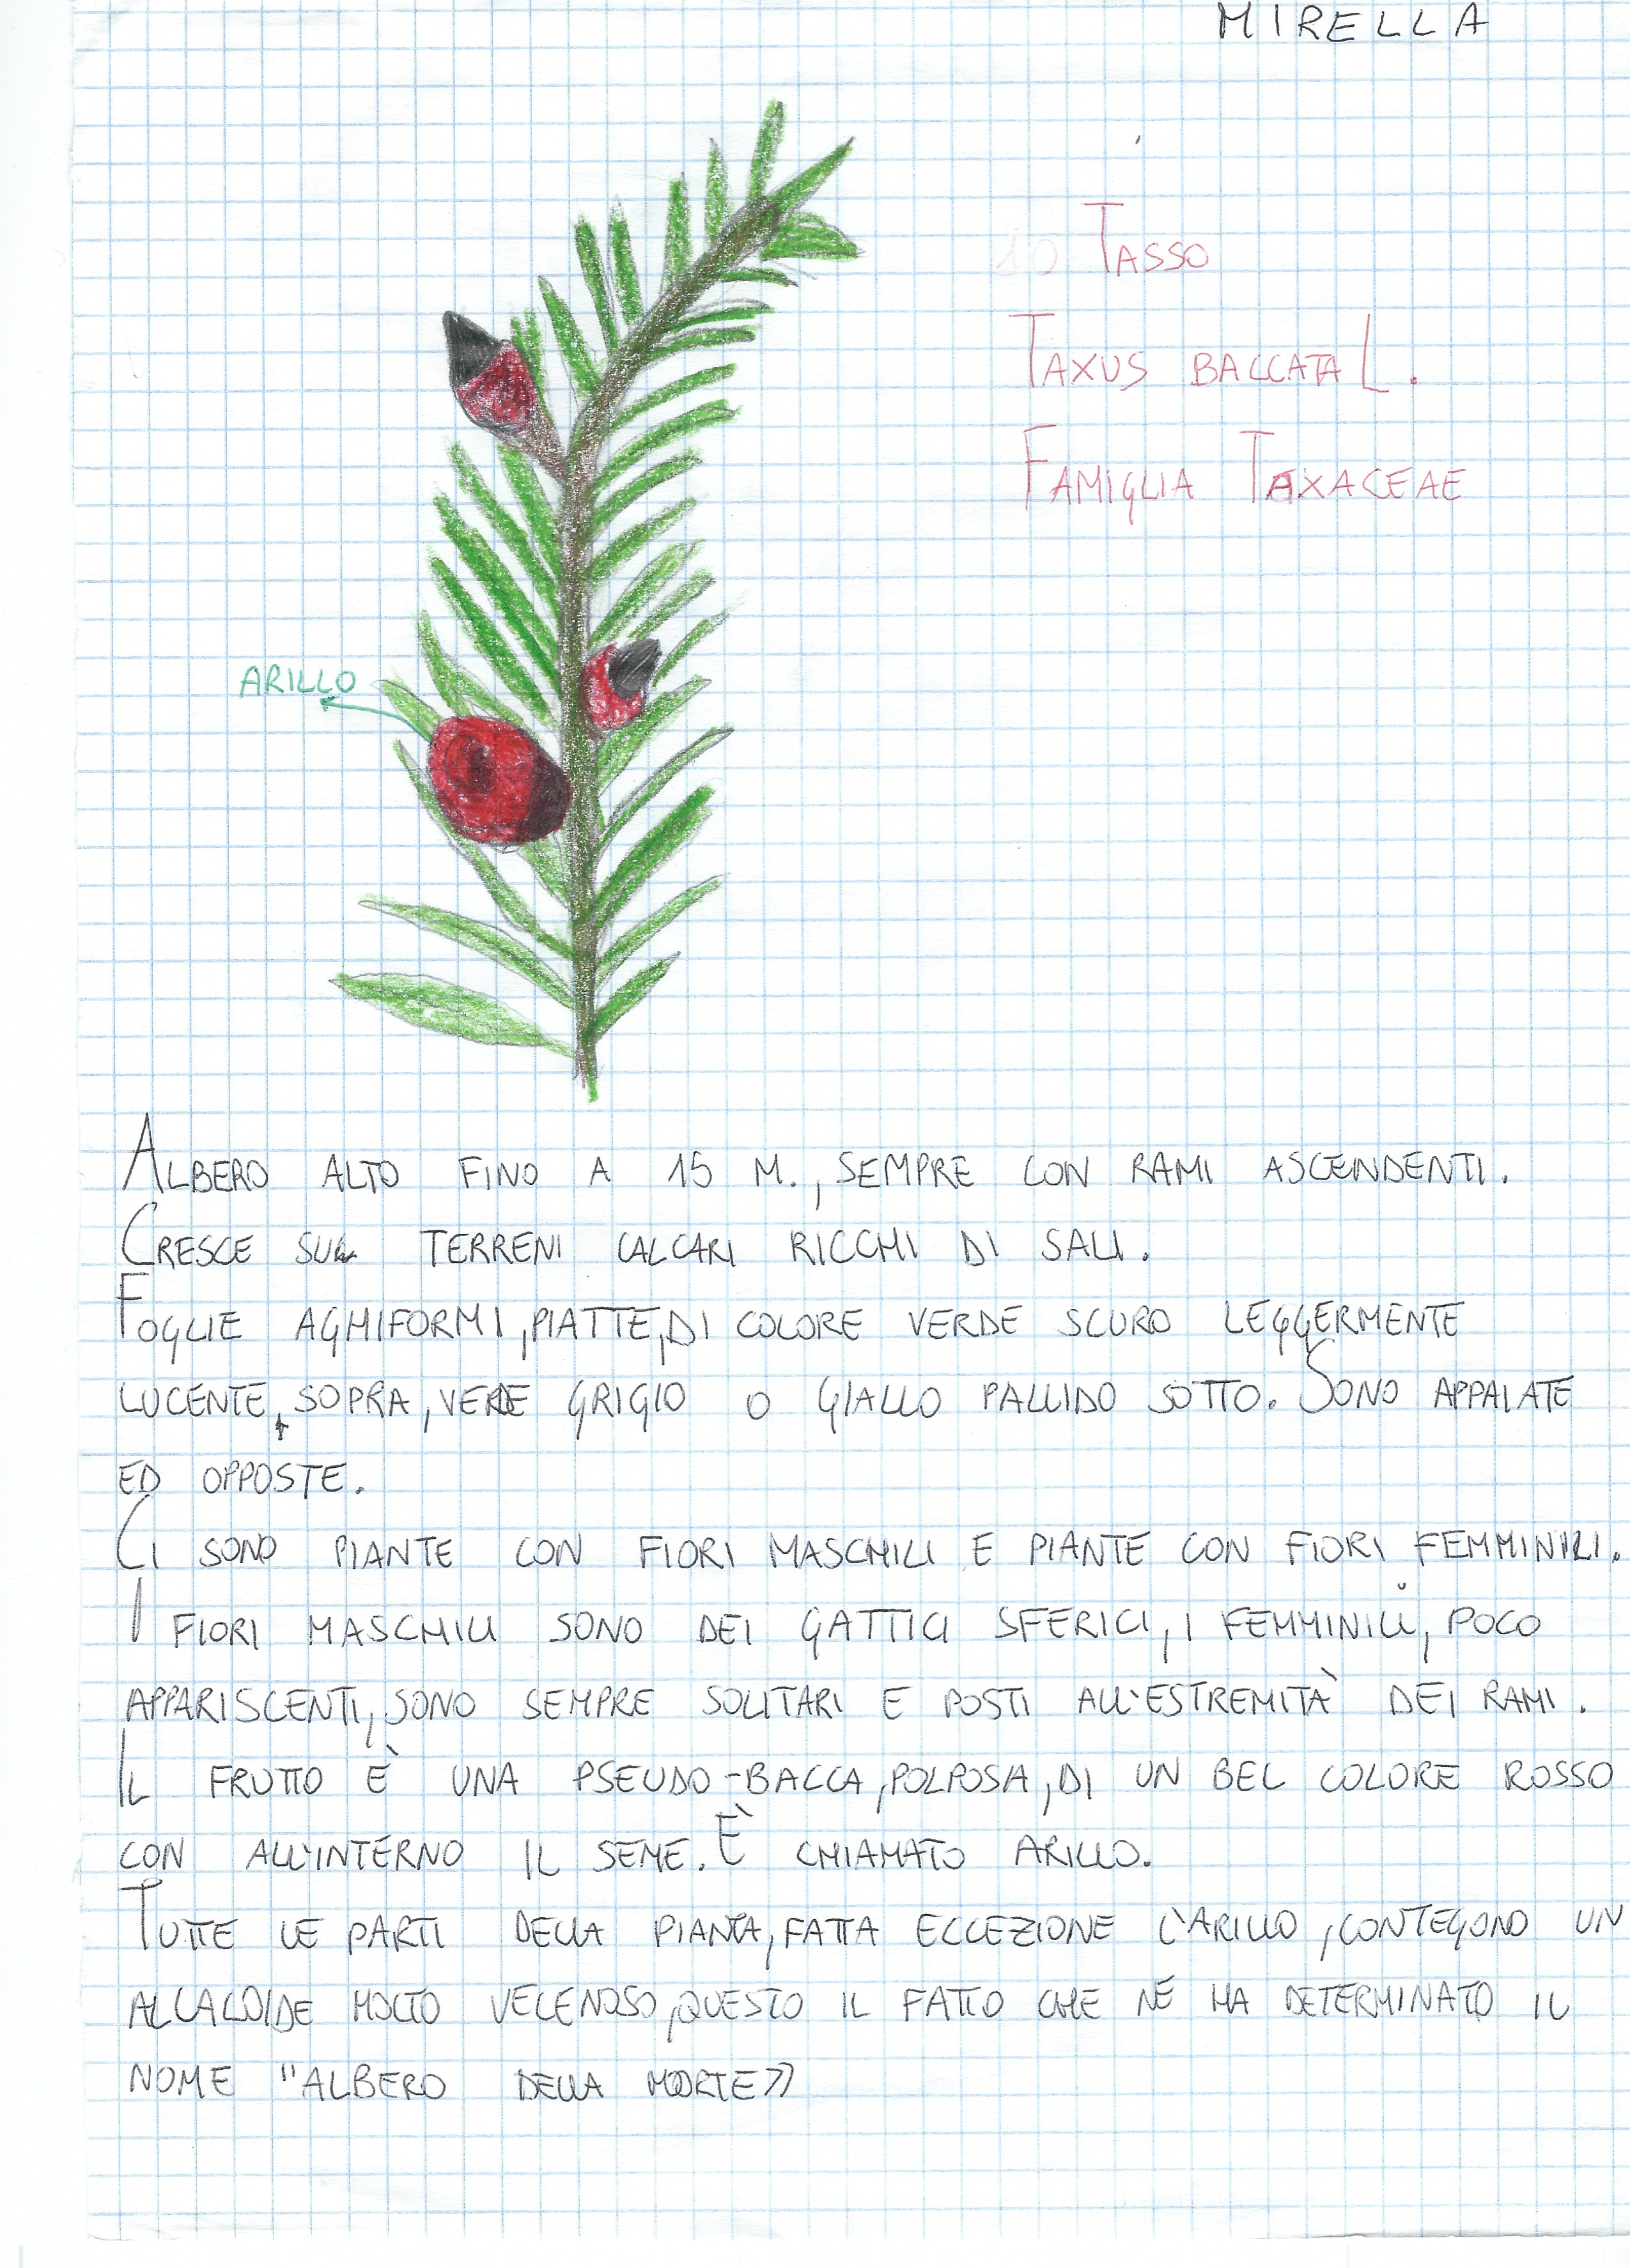 MIRELLA
10 TASSO
TAXUS BACCATA L.
FAMIGLIA TAXACEAE
ARILLO
ALBERO ALTO FINO A 15 M., SEMPRE CON RAMI ASCENDENTI.
CRESCE SU TERRENI CALCARI RICCHI DI SALI.
FOGLIE AGHIFORMI, PIATTE, DI COLORE VERDE SCURO LEGGERMENTE
LUCENTE, SOPRA, VERDE GRIGIO O GIALLO PALLIDO SOTTO. SONO APPAIATE
ED OPPOSTE.
CI SONO PIANTE CON FIORI MASCHILI E PIANTE CON FIORI FEMMINILI.
I FIORI MASCHILI SONO DEI GATTICI SFERICI, I FEMMINILI, POCO
APPARISCENTI, SONO SEMPRE SOLITARI E POSTI ALL'ESTREMITÀ DEI RAMI.
IL FRUTTO È UNA PSEUDO-BACCA, POLPOSA, DI UN BEL COLORE ROSSO
CON ALL'INTERNO IL SEME. È CHIAMATO ARILLO.
TUTTE LE PARTI DELLA PIANTA, FATTA ECCEZIONE L'ARILLO, CONTEGONO UN
ALCALOIDE MOLTO VELENOSO, QUESTO IL FATTO CHE NE HA DETERMINATO IL
NOME "ALBERO DELLA MORTE"